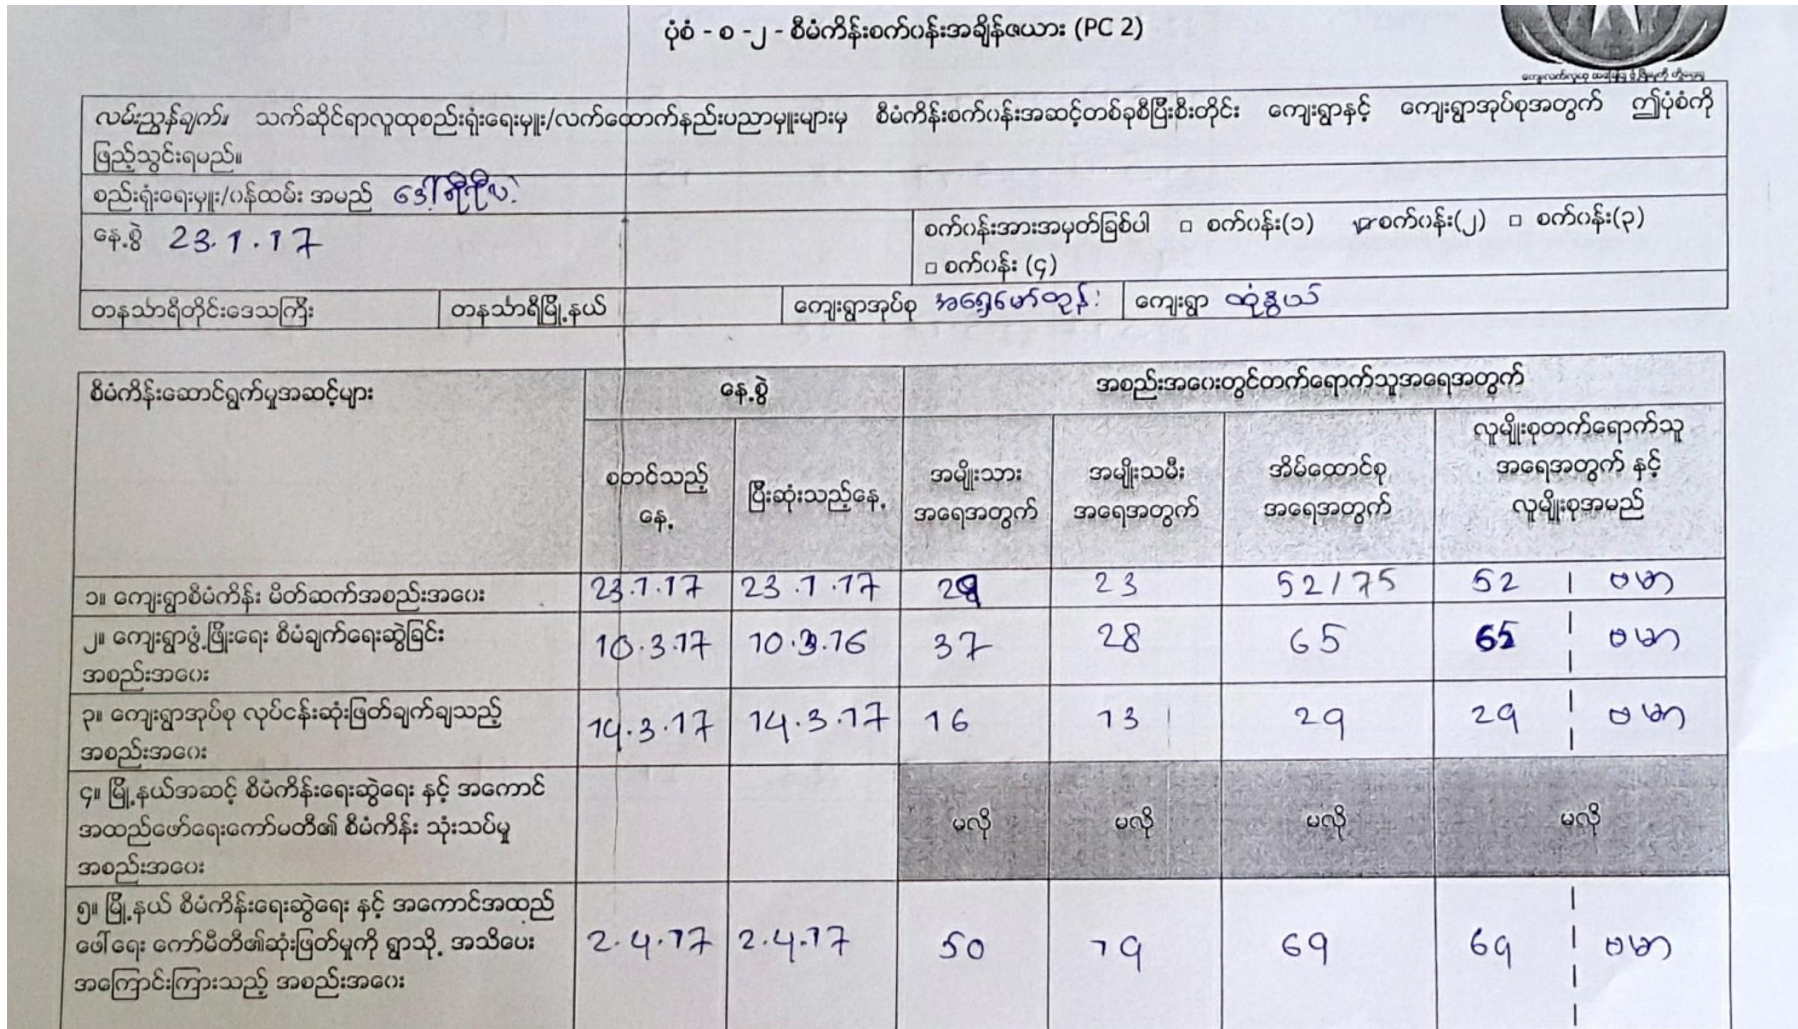 ပုံစံ - စ -၂ - စီမံကိန်းစက်ဝန်းအချိန်ဇယား (PC 2)
လမ်းညွှန်ချက်။ သက်ဆိုင်ရာလူထုစည်းရုံးရေးမှူး/လက်ထောက်နည်းပညာမှူးများမှ စီမံကိန်းစက်ဝန်းအဆင့်တစ်ခုစီပြီးစီးတိုင်း ကျေးရွာနှင့် ကျေးရွာအုပ်စုအတွက် ဤပုံစံကို
ဖြည့်သွင်းရမည်။
စည်းရုံးရေးမှူး/ဝန်ထမ်း အမည်
နေ့စွဲ 23.1.17
စက်ဝန်းအားအမှတ်ခြစ်ပါ □ စက်ဝန်း(၁) ☑ စက်ဝန်း(၂) □ စက်ဝန်း(၃)
□ စက်ဝန်း (၄)
တနင်္သာရီတိုင်းဒေသကြီး တနင်္သာရီမြို့နယ် ကျေးရွာအုပ်စု အရှေ့မော်တုန်း ကျေးရွာ
စီမံကိန်းဆောင်ရွက်မှုအဆင့်များ နေ့စွဲ အစည်းအဝေးတွင်တက်ရောက်သူအရေအတွက်
စတင်သည့်
နေ့
ပြီးဆုံးသည့်နေ့
အမျိုးသား
အရေအတွက်
အမျိုးသမီး
အရေအတွက်
အိမ်ထောင်စု
အရေအတွက်
လူမျိုးစုတက်ရောက်သူ
အရေအတွက် နှင့်
လူမျိုးစုအမည်
၁။ ကျေးရွာစီမံကိန်း မိတ်ဆက်အစည်းအဝေး 23.1.17 23.1.17 29 23 52/75 52 ဗမာ
၂။ ကျေးရွာဖွံ့ဖြိုးရေး စီမံချက်ရေးဆွဲခြင်း
အစည်းအဝေး
10.3.17 10.3.16 37 28 65 65 ဗမာ
၃။ ကျေးရွာအုပ်စု လုပ်ငန်းဆုံးဖြတ်ချက်ချသည့်
အစည်းအဝေး
14.3.17 14.3.17 16 13 29 29 ဗမာ
၄။ မြို့နယ်အဆင့် စီမံကိန်းရေးဆွဲရေး နှင့် အကောင်
အထည်ဖော်ရေးကော်မတီ၏ စီမံကိန်း သုံးသပ်မှု
အစည်းအဝေး
မလို မလို မလို မလို
၅။ မြို့နယ် စီမံကိန်းရေးဆွဲရေး နှင့် အကောင်အထည်
ဖေါ်ရေး ကော်မီတီ၏ဆုံးဖြတ်မှုကို ရွာသို့ အသိပေး
အကြောင်းကြားသည့် အစည်းအဝေး
2.4.17 2.4.17 50 19 69 69 ဗမာ